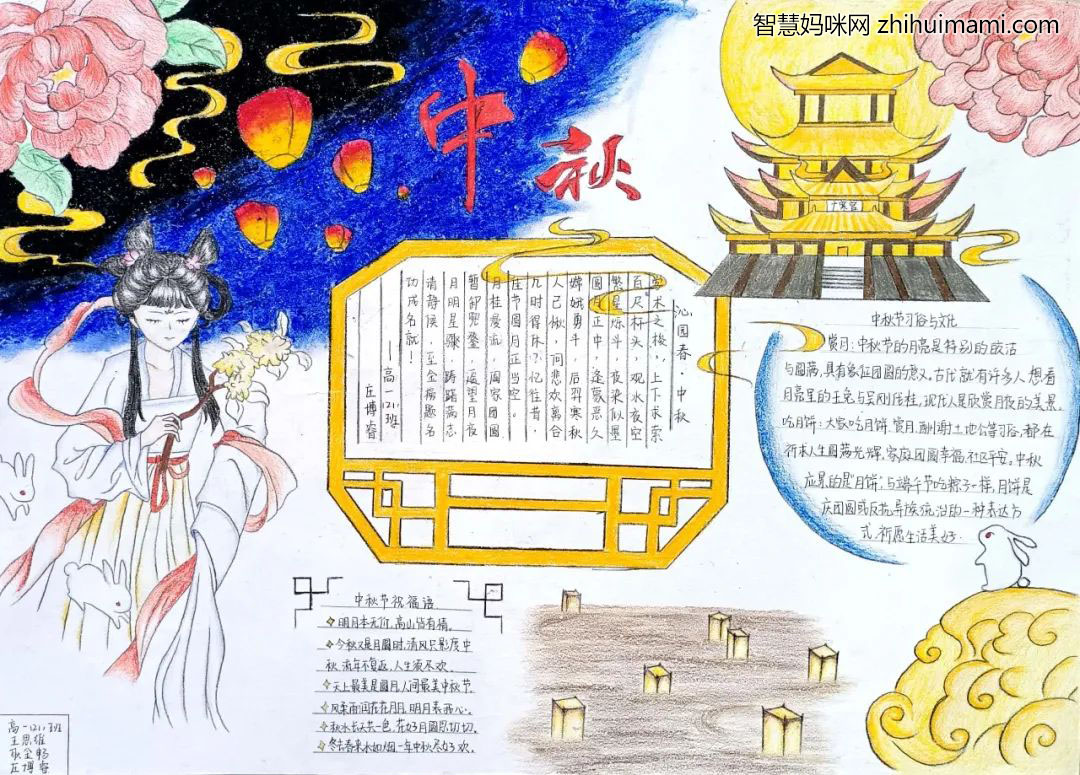 智慧妈咪网 zhihuimami.com
中秋
广寒宫
沁园春·中秋
木之梭，上下求索
百尺杆头，观水夜空
繁星烁斗 夜 似墨
圆月正中，逢 恶久
嫦娥勇斗，后羿寒秋
人已愀，问悲欢离合
几时得休？忆往昔，
佳节圆月正当空。
月桂爱 ，阖家团圆
暂卸兜鍪，遥望月夜
月明星骤，踌躇满志
请静候，至金榜题名
功成名就！
——高一1211班
左博睿
中秋节习俗与文化
赏月：中秋节的月亮是特别的皎洁
与圆满，具有象征团圆的意义，古代就有许多人想看
月亮里的玉兔与吴刚伐桂，现代人是欣赏月夜的美景。
吃月饼：大家吃月饼、赏月、酬谢土地公等习俗，都在
祈求人生圆满光辉，家庭团圆幸福，社区平安。中秋
应景的是月饼；与端午节吃粽子一样，月饼是
庆团圆或反抗异族统治的一种表达方
式，祈愿生活美好。
中秋节祝福语
明月本无价，高山皆有情。
今秋又是月圆时，清风只影度中
秋，流年不复返，人生须尽欢。
天上最美是圆月，人间最美中秋节。
风柔雨润花在月，明月表我心。
秋水长天共一色，花好月圆思切切。
冬去春来水如烟，一年中秋尽好欢。
高一1211班
王思维
耿金畅
左博睿